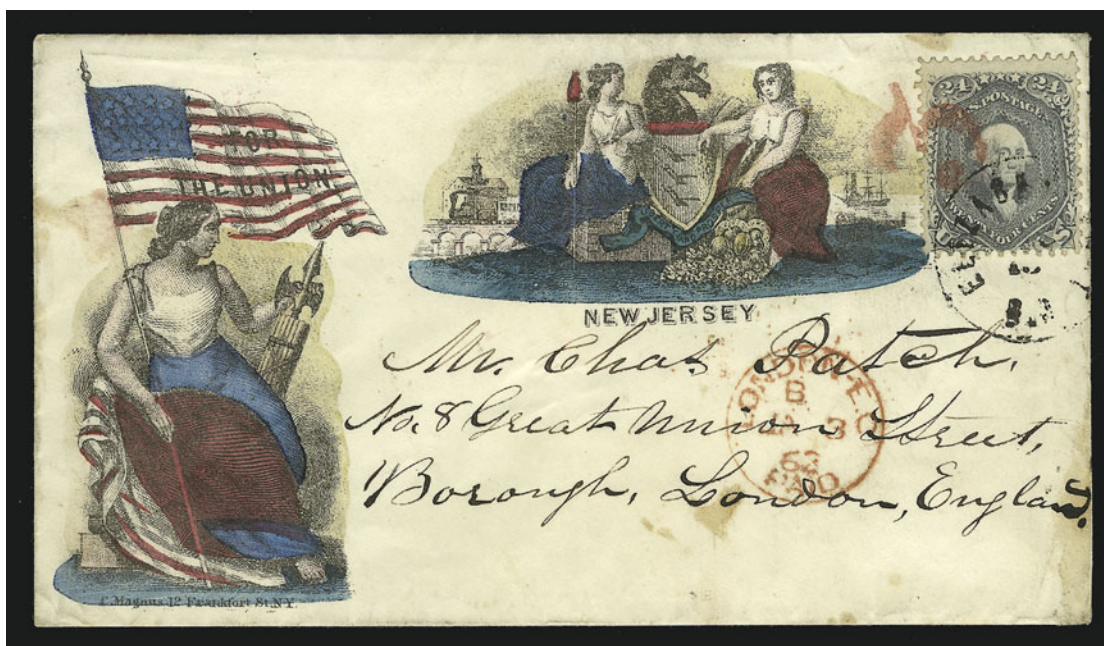 FOR
THE UNION
24 24
U.S. POSTAGE
TWENTY FOUR CENTS
NEW JERSEY
Mr. Chas Patch,
No. 8 Great Union Street,
Borough, London, England.
LONDON-E.C
B
PAID
C. Magnus. 12 Frankfort St. N.Y.